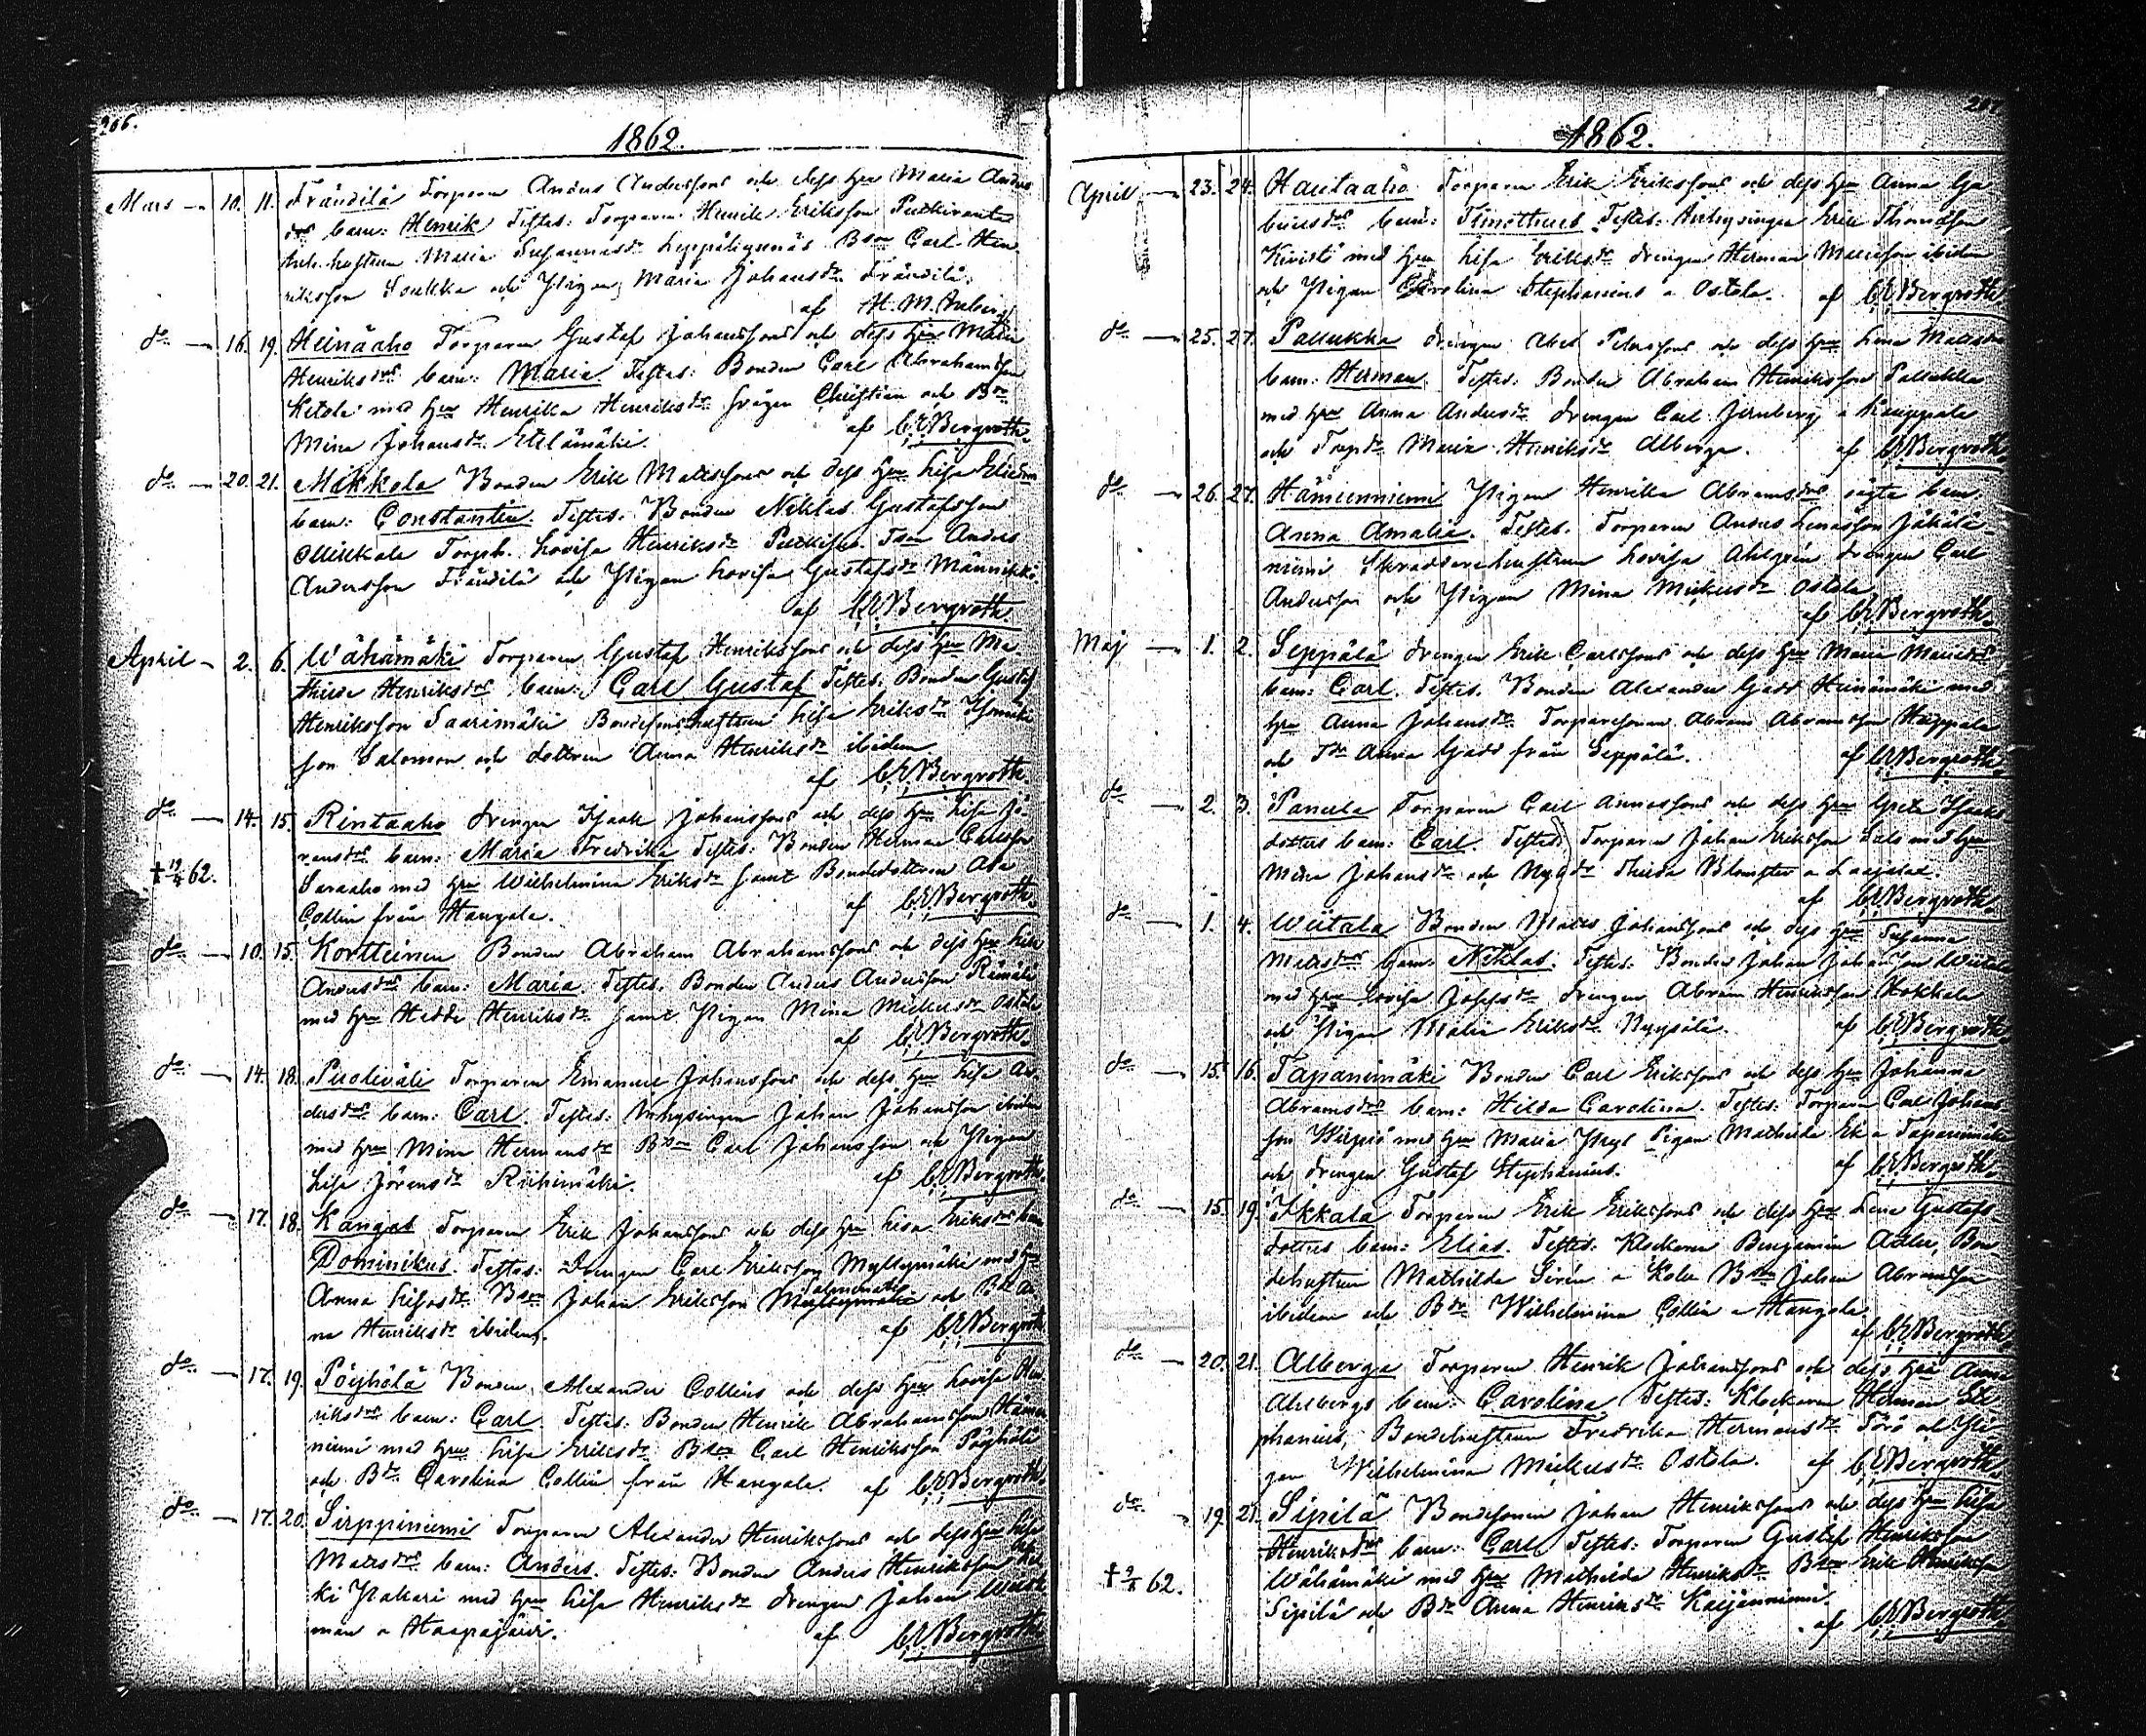 206.
1862.
Mars — 10. 11. Frändilä Torparen Anders Anderssons och dess hru Maria Anders
drs barn: Henrik Testes: Torparen Henrik Eriksson
hustrun Maria Leppäligenäs Bson Carl Hen
riksson Soukka och Pigan Maria Johansdr Frändilä.
af H. M.
do — 16. 19. Heinäaho Torparen Gustaf Johanssons och dess hru Maria
Henriksdrs barn: Maria Testes: Bonden Carl Abrahamsson
Ketola med hru Henrika Henriksdr Christian och Bdr
Mina Johansdr Etelämäki. af C.E.Bergroth.
do — 20. 21. Mikkola Bonden Erik Mattssons och dess hru Lisa
barn: Constantin. Testes: Bonden Niklas Gustafsson
Mikkola Torph. Lovisa Henriksdr Tson Anders
Andersson Frändilä och Pigan Lovisa Gustafsdr Männikkö
af C.E.Bergroth.
April — 2. 6. Wähämäki Torparen Gustaf Henrikssons och dess hru Ma
thilda Henriksdrs barn: Carl Gustaf Testes: Bonden Gustaf
Henriksson Saarimäki Bondesonshustrun Lisa Eriksdr
son Salomon och dottren Anna Henriksdr ibidem
af C.E.Bergroth
do — 14. 15. Rintaaho Drengen Isaak Johanssons och dess hru Lisa Jö
ransdrs barn: Maria Fredrika Testes: Bonden Herman Carlsson
† 19/4 62. Saraaho med hru Wilhelmina Eriksdr samt Bondedottren Ada
Collin från Hangola. af C.E.Bergroth.
do — 10. 15. Kortteinen Bonden Abraham Abrahamssons och dess hru
Andersdrs barn: Maria. Testes. Bonden Anders Andersson
med hru Hedda Henriksdr samt Pigan Mina Mickelsdr Ostola
af C.E.Bergroth.
do — 14. 18. Puoliväli Torparen Emanuel Johanssons och dess hru Lisa An
dersdrs barn: Carl. Testes: Inhysingen Johan Johansson ibidem
med hru Mina Hermansdr Bson Carl Johansson och Pigan
Lisa Jöransdr Riihimäki. af C.E.Bergroth.
do — 17. 18. Kangas Torparen Erik Johanssons och dess hru Lisa Eriksdrs barn
Dominikus. Testes: Drengen Carl Eriksson Myllymäki med hru
Anna Lisasdr Bson Johan Eriksson Myllymäki och Bdr An
na Henriksdr ibidem. af C.E.Bergroth
do — 17. 19. Pöyhölä Bonden Alexander Collins och dess hru Lovisa Hen
riksdrs barn: Carl. Testes: Bonden Henrik Abrahamsson Hämeen
niemi med hru Lisa Eriksdr Bson Carl Henriksson Pöyhölä
och Bdr Carolina Collin från Hangola. af C.E.Bergroth.
do — 17. 20. Sirppiniemi Torparen Alexander Henrikssons och dess hru Lisa
Mattsdrs barn: Anders. Testes: Bonden Anders Henriksson
ki Pakari med hru Lisa Henriksdr Drengen Johan
man a Haapajärvi. af C.E.Bergroth.
1862.
April — 23. 24. Hautaaho Torparen Erik Erikssons och dess hru Anna Ga
brielsdrs barn: Timotheus Testes: Inhysingen Erik Thomasson
Kivistö med hru Lisa Eriksdr Drengen Herman ibidem
och Pigan Carolina Stephanius a Ostola. af C.E.Bergroth
do — 25. 27. Pallukka Drengen Abel Peterssons och dess hru Lena Mattsdrs
barn: Herman Testes: Bonden Abraham Henriksson Pallukka
med hru Anna Andersdr Drengen Carl Jernberg a Kauppala
och Torpdr Maria Henriksdr Alberga. af C.E.Bergroth.
do — 26. 27. Hämeenniemi Pigan Henrika Abramsdrs oägta barn
Anna Amalia. Testes. Torparen Anders
niemi Skräddarehustrun Lovisa Ahlgrén Drengen Carl
Andersson och Pigan Mina Mickelsdr Ostola
af C.E.Bergroth.
Maj — 1. 2. Seppälä Drengen Erik Carlssons och dess hru Maria
barn: Carl. Testes. Bonden Alexander Gadd Heinämäki med
hru Anna Johansdr Torparesonen Abram Abramsson Kauppala
och Tdr Anna Gadd från Seppälä. af C.E.Bergroth.
do — 2. 3. Panula Torparen Carl Annassons och dess hru Greta Isaaks
dotters barn: Carl. Testes: Torparen Johan Eriksson Salo med hru
Mina Johansdr och Thilda Blomster a
af C.E.Bergroth.
do — 1. 4. Wiitala Bonden Matts Johanssons och dess hru Susanna
Mattsdrs barn: Niklas. Testes: Bonden Johan Johansson Wiitala
med hru Lovisa Josefsdr Drengen Abram Henriksson Kokkala
och Pigan Maria Eriksdr af C.E.Bergroth
do — 15. 16. Tapanimäki Bonden Carl Erikssons och dess hru Johanna
Abramsdrs barn: Hilda Carolina. Testes: Torparen Carl Johans
son med hru Maria Pigan Mathilda Ek a Tapanimäki
och Drengen Gustaf Stephanius. af C.E.Bergroth.
do — 15. 19. Ikkala Torparen Erik Erikssons och dess hru Lena Gustafs
dotters barn: Elias. Testes: Klockaren Benjamin Adler, Bon
dehustrun Mathilda Sirén a Kola Bson Johan Abramsson
ibidem och Bdr Wilhelmina Collin a Hangola.
af C.E.Bergroth.
do — 20. 21. Alberga Torparen Henrik Johanssons och dess hru Anna
Ahlbergs barn: Carolina Testes: Klockaren Herman Ste
phanius, Bondehustrun Fredrika Hermansdr Törö och Pi
gan Wilhelmina Mickelsdr Ostola. af C.E.Bergroth.
do — 19. 21. Sipilä Bondesonen Johan Henrikssons och dess hru Lisa
Henriksdrs barn: Carl Testes: Torparen Gustaf Henriksson
† 9/8 62. Wähämäki med hru Mathilda Henriksdr Bson Erik Henriksson
Sipilä och Bdr Anna Henriksdr
af C.E.Bergroth.